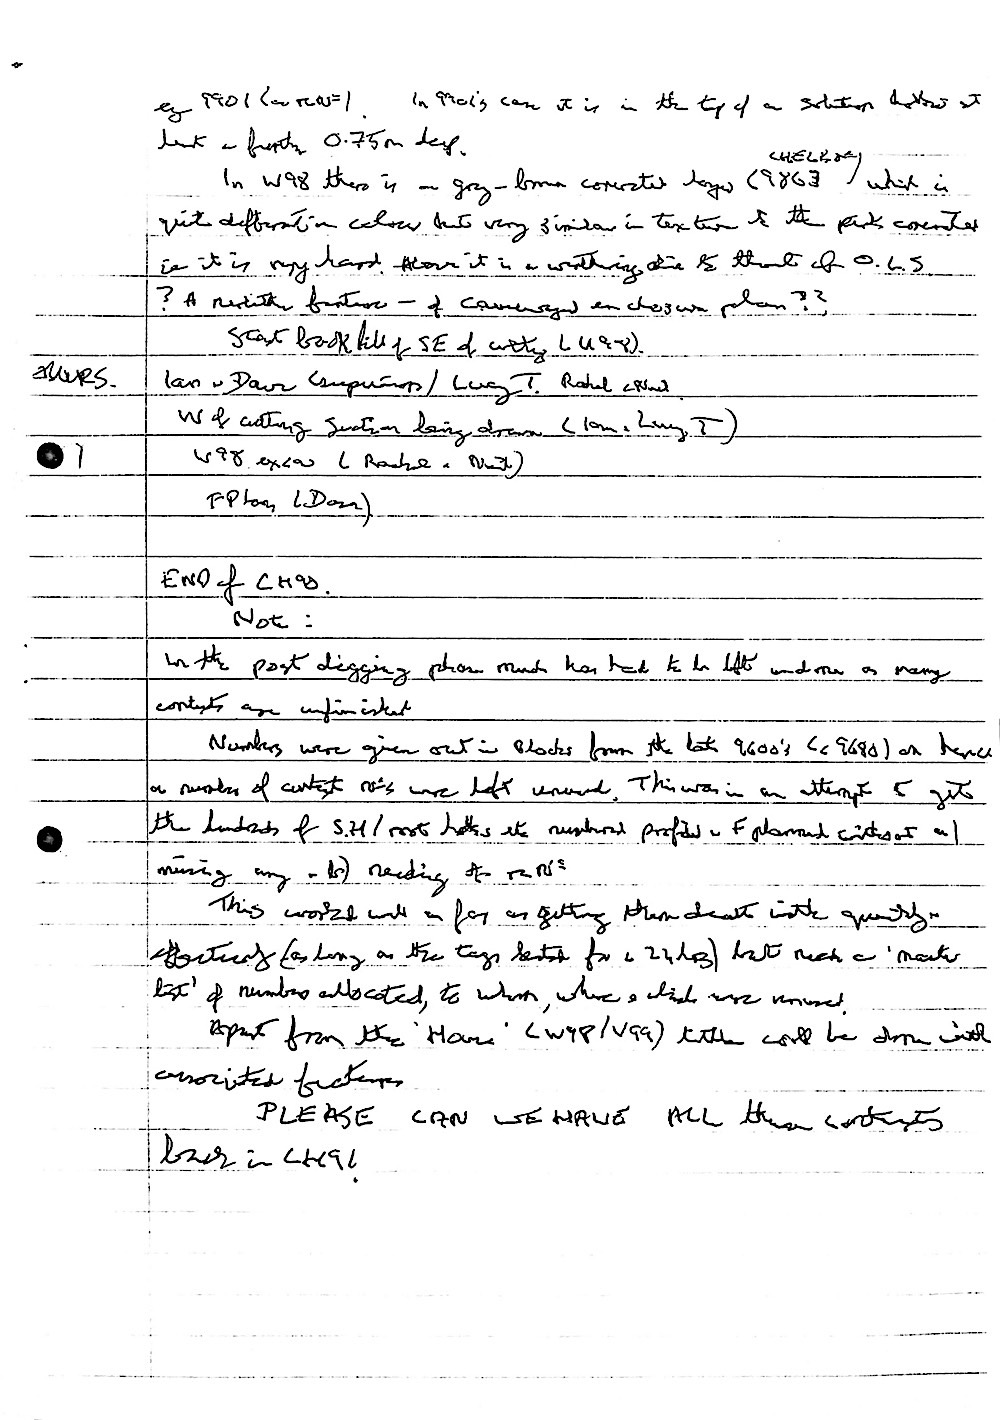 eg 9901 (or reN=). In 9901's case it is in the top of a solution hollow at
least a further 0.75m deep.
CHECK
In W98 there is a grey-brown concreted layer (9863) which is
quite different in colour but very similar in texture to the pink concreted
ie it is very hard. Above it is a worthing due to thrust of O.L.S
? A feature - of on plan??
Start backfill of SE of cutting (U98).
THURS. Ian + Dave (supervisors) / Lucy T. Rachel
W of cutting section being drawn (Ian + Lucy T)
W98 excav (Rachel + )
F Plan (Dave)
END of CH90.
Note:
In the post digging phase much has had to be left undone as many
contexts are unfinished
Numbers were given out in blocks from the late 9600's (c 9680) on hence
a number of context Nos were left unused. This was in an attempt to get
the hundreds of S.H/root holes etc numbered profiled + F planned without a)
missing any + b) needing to reNo
This worked well as far as getting them dealt with quickly +
effectively (as long as the tags lasted for 24hrs) but needs a 'master
list' of numbers allocated, to whom, where + which were unused.
Apart from the 'House' (W98/V99) little could be done with
associated features
PLEASE CAN WE HAVE ALL these contexts
back in CH91!